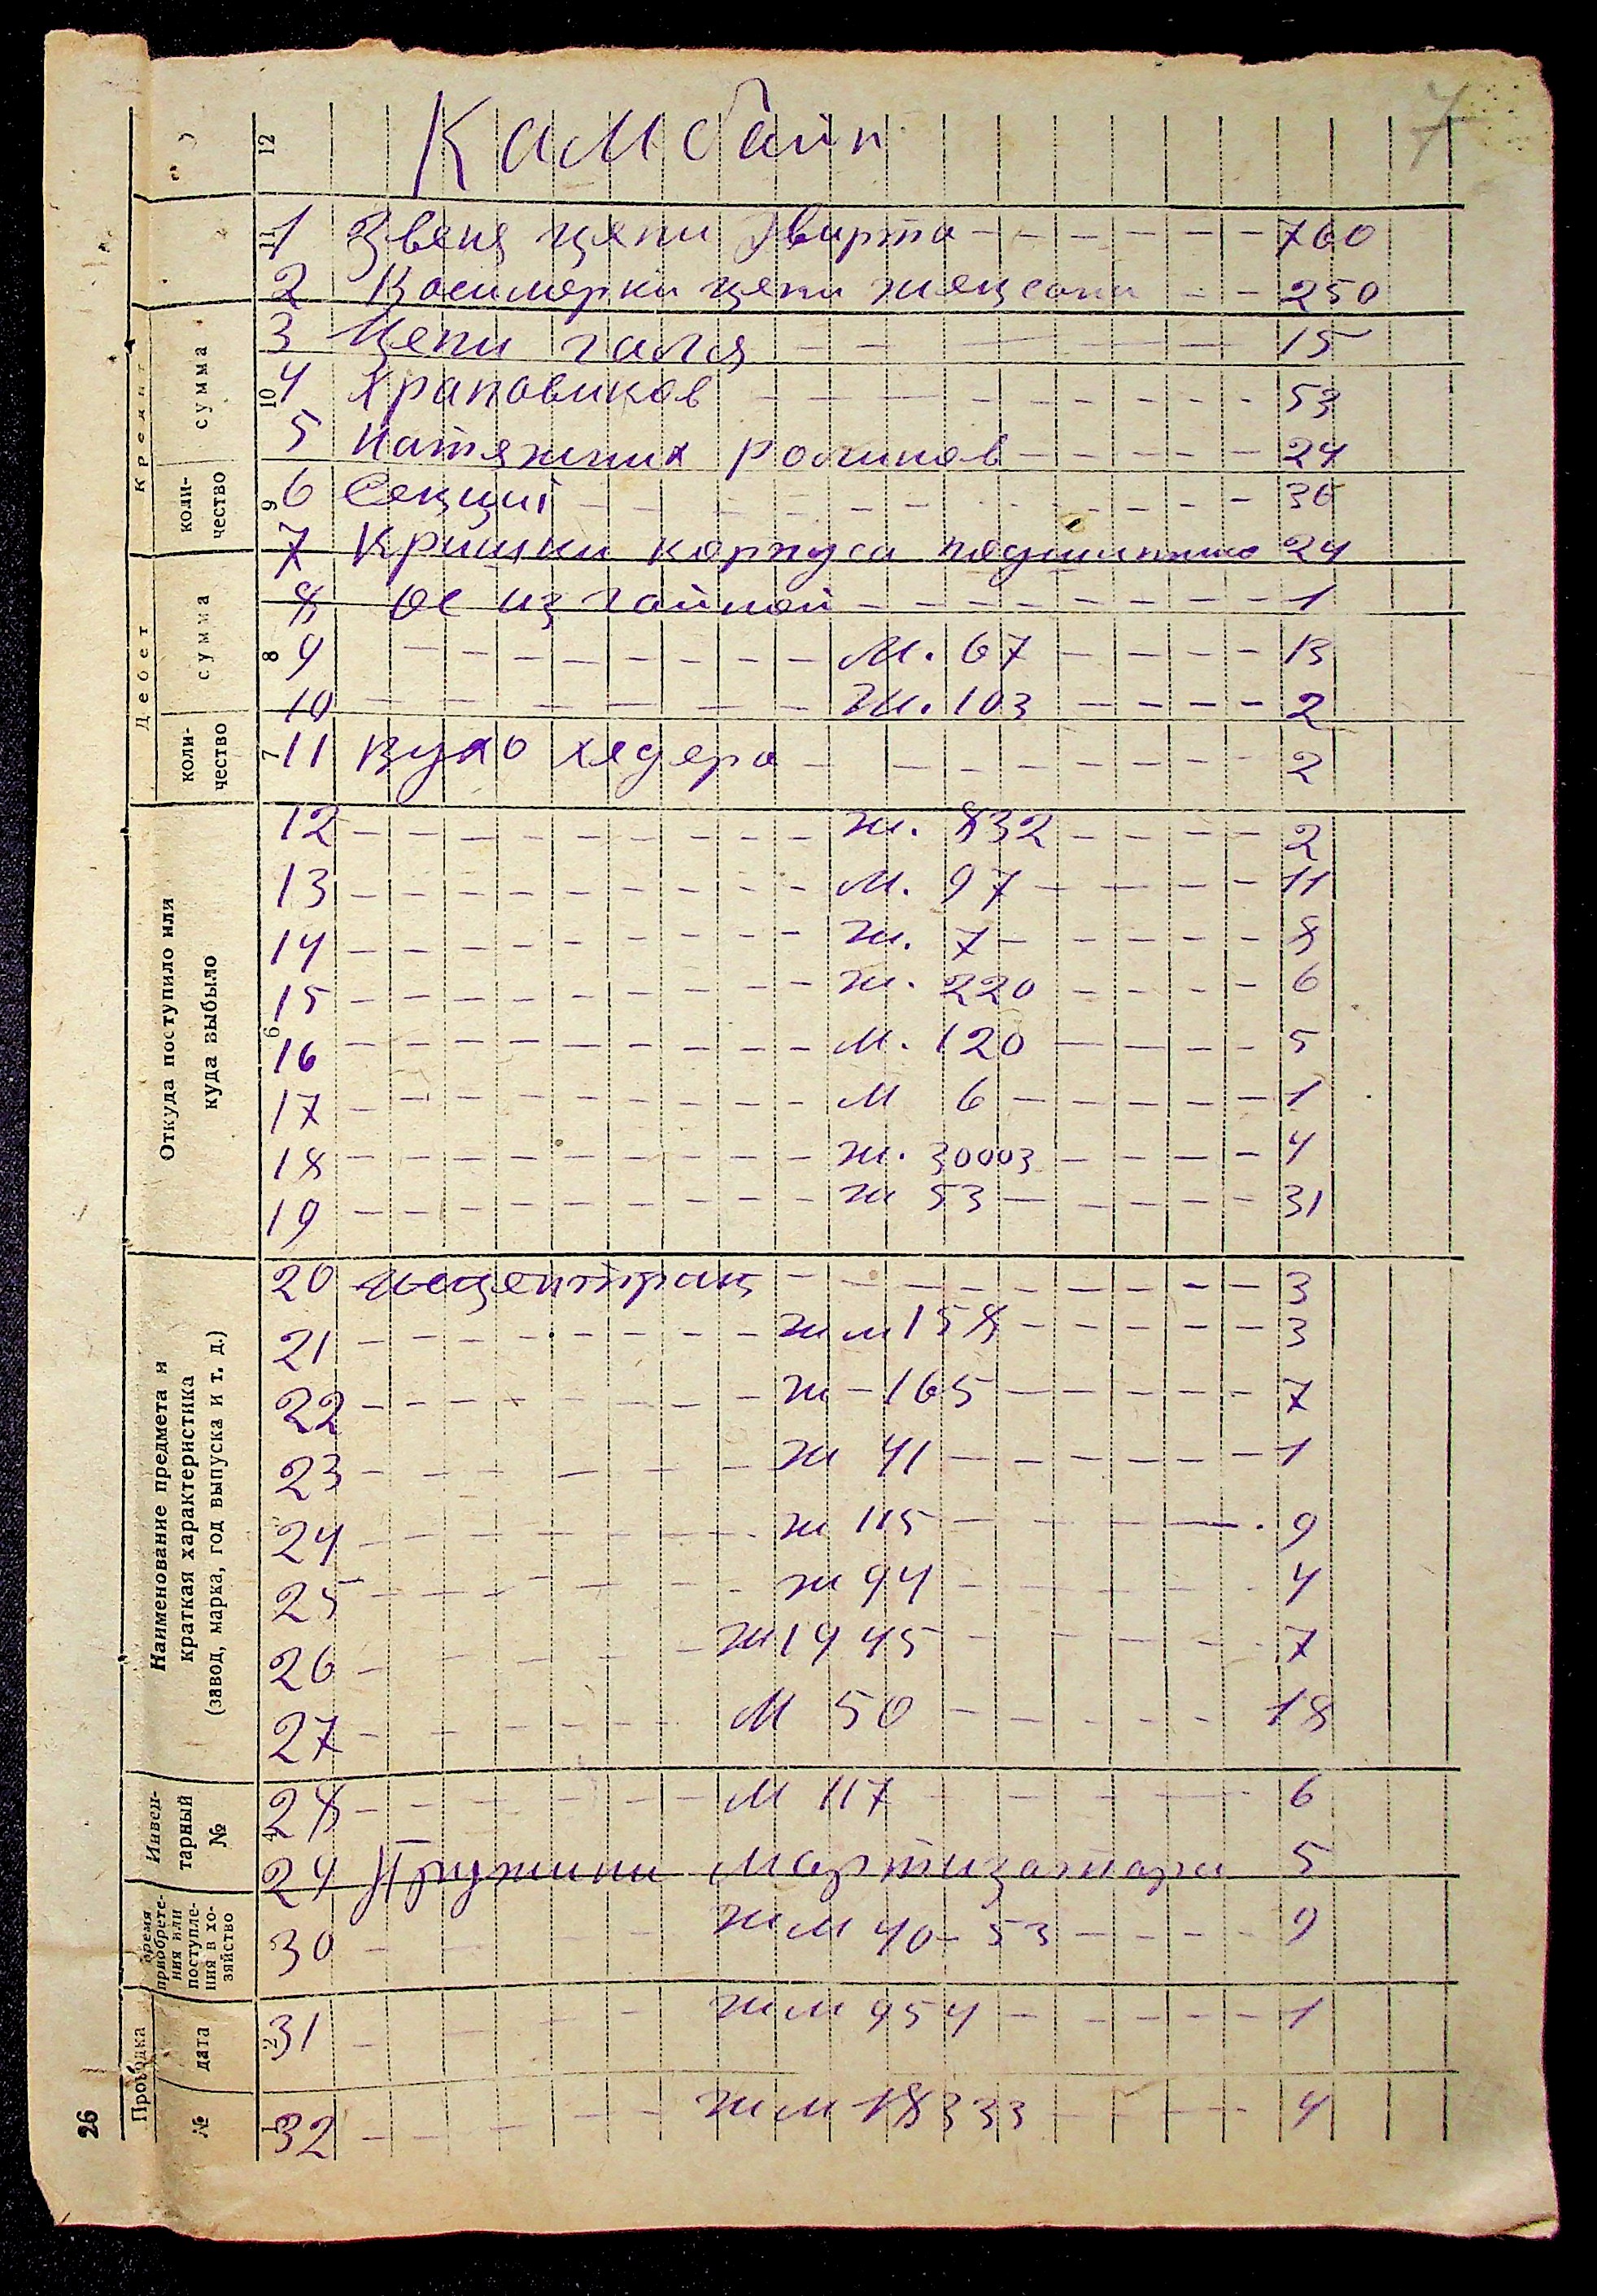 7
Камбайн
1 Звеня цепи Эвирта - - - - - - 760
2 Восимерки цепи - - 250
3 Цепи галя - - - - 15
4 Храповиков - - - - - - - - - 53
5 Натяжних роликов - - - - - 24
6 Секций - - - - - - - - - - - 36
7 Кришки корпуса 24
8 Ос из гайкой - - - - - - - - 1
9 - - - - - - - - М. 67 - - - - 13
10 - - - - - - - Ж. 103 - - - - 2
11 Вухо хедера - - - - - - - - 2
12 - - - - - - - - - ж. 832 - - - - 2
13 - - - - - - - - - М. 97 - - - - 11
14 - - - - - - - - - ж. 7 - - - - - 8
15 - - - - - - - - - ж. 220 - - - - 6
16 - - - - - - - - - М. 120 - - - - 5
17 - - - - - - - - - М 6 - - - - - 1
18 - - - - - - - - - ж. 30003 - - - - 4
19 - - - - - - - - - ж 53 - - - - - 31
20 - - - - - - - - - 3
21 - - - - - - - - жм 158 - - - - - 3
22 - - - - - - - - ж - 165 - - - - - 7
23 - - - - - - ж 41 - - - - - - 1
24 - - - - - - - ж 115 - - - - 9
25 - - - - - - - ж 94 - - - - - 4
26 - - - - - - ж 1945 - - - - - 7
27 - - - - - - М 50 - - - - - 18
28 - - - - - - - М 117 - - - - - 6
29 Пружини 5
30 - - - - жм 40-53 - - - - 9
31 - - - - жм 954 - - - - - 1
32 - - - - - жм 18333 - - - - 4
26
Проводка
№
дата
Время приобрете-
ния или
поступле-
ния в хо-
зяйство
Инвен-
тарный
№
Наименование предмета и
краткая характеристика
(завод, марка, год выпуска и т. д.)
Откуда поступило или
куда выбыло
Дебет
коли-
чество
сумма
Кредит
коли-
чество
сумма
1
2
4
6
7
8
9
10
11
12